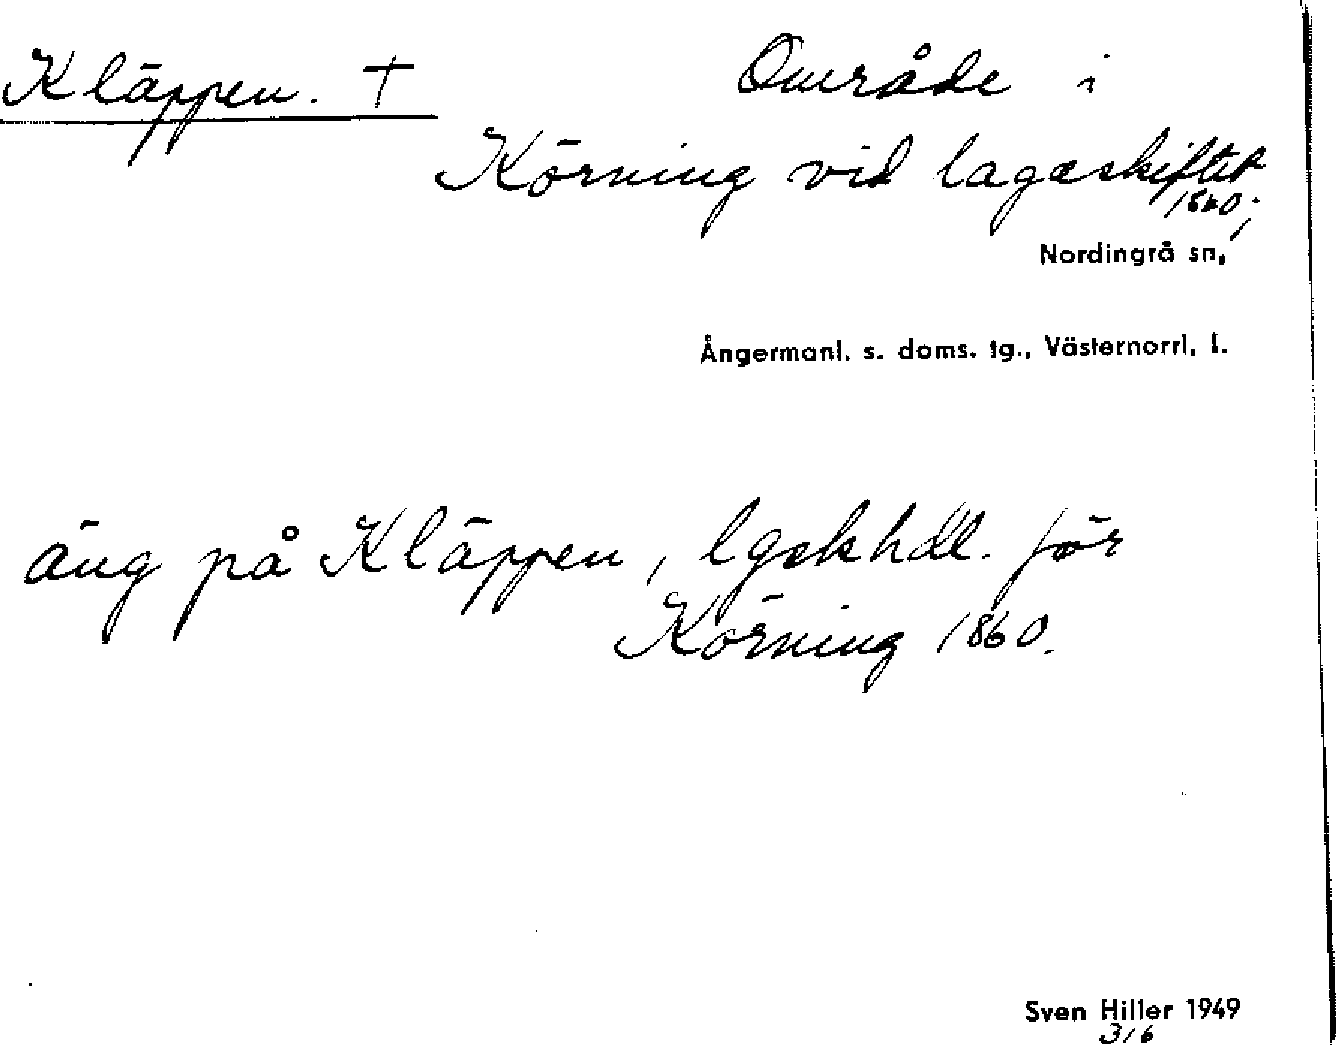 Kläppen. † Område i
Körning vid lagaskiftet
1860;
Nordingrå sn,
Ångermanl. s. doms. tg., Västernorrl. l.
äng på Kläppen, lgskhdl. för
Körning 1860.
Sven Hiller 1949
316